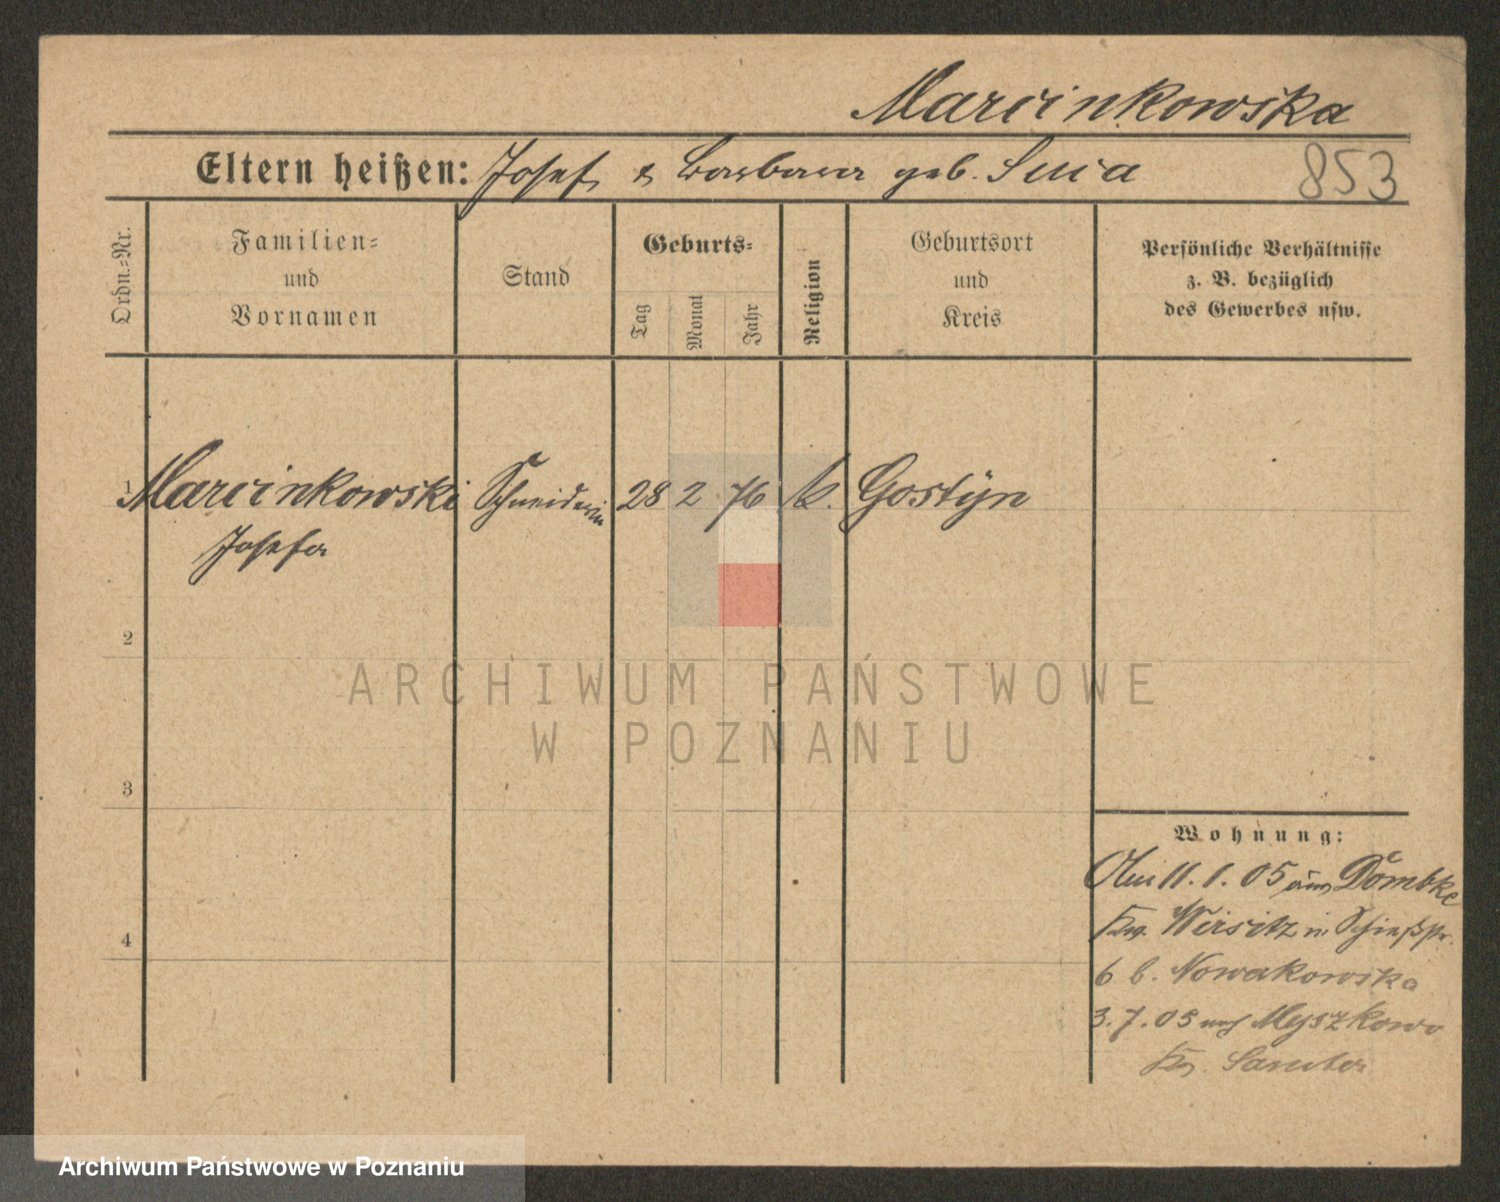 Marcinkowska
Eltern heißen: Josef & Barbara geb. Smia
853
Ordn.-Nr.
Familien-
und
Vornamen
Stand
Geburts-
Tag
Monat
Jahr
Religion
Geburtsort
und
Kreis
Persönliche Verhältnisse
z. B. bezüglich
des Gewerbes usw.
1 Marcinkowski Schneiderin 28 2 76 k. Gostÿn
Josefa
2
3
4
ARCHIWUM PAŃSTWOWE
W POZNANIU
Wohnung:
11. 1. 05 aus Dombke
Krs. Wirsitz in Schießstr.
6 b. Nowakowska
3. 7. 05 nach Myszkowo
Krs. Samter
Archiwum Państwowe w Poznaniu